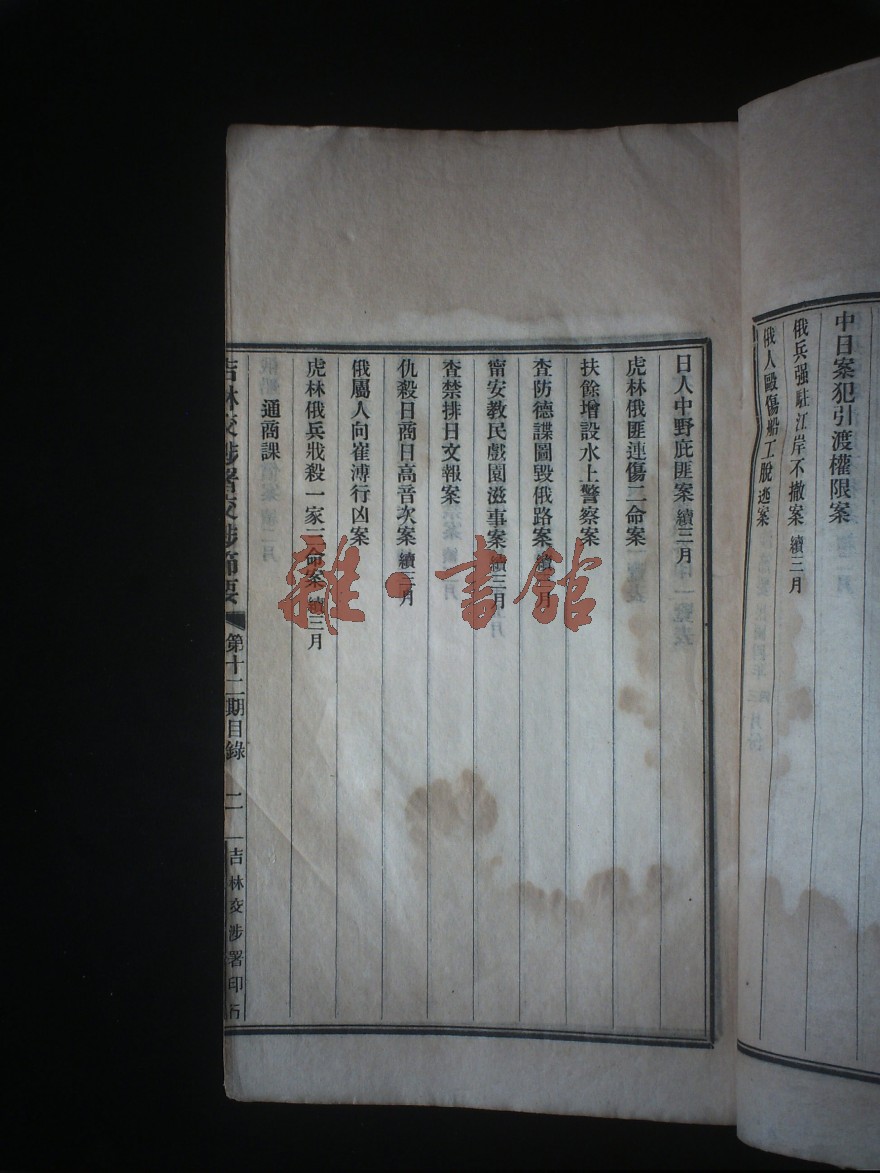 中日案犯引渡權限案
俄兵强駐江岸不撤案 續三月
俄人毆傷船工脫逃案
日人中野庇匪案 續三月
虎林俄匪連傷二命案
扶餘增設水上警察案
查防德諜圖毀俄路案 續三月
甯安教民戲園滋事案 續三月
查禁排日文報案
仇殺日商日高音次案 續三月
俄屬人向崔溥行凶案
虎林俄兵戕殺一家三命案 續三月
通商課
吉林交涉署交涉節要 第十二期目錄 二 吉林交涉署印行
雜·書館